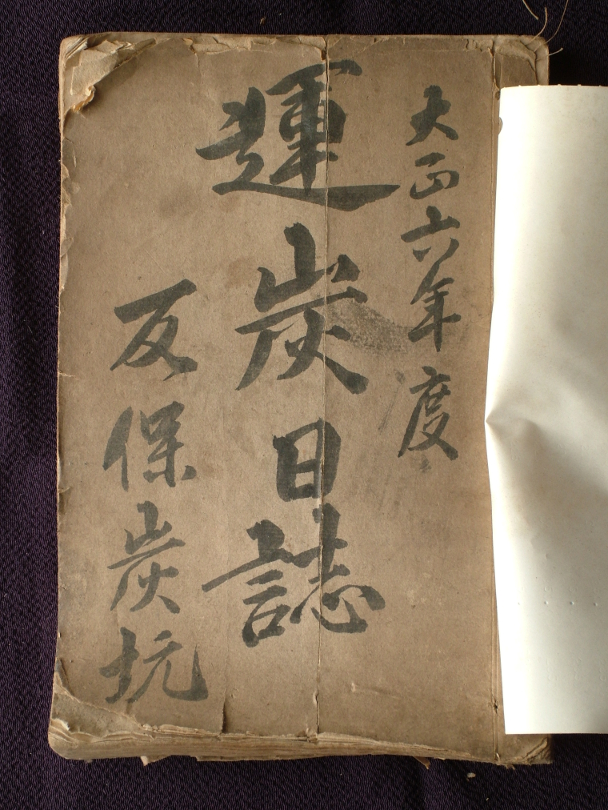 大正六年度
運炭日誌
反保炭坑